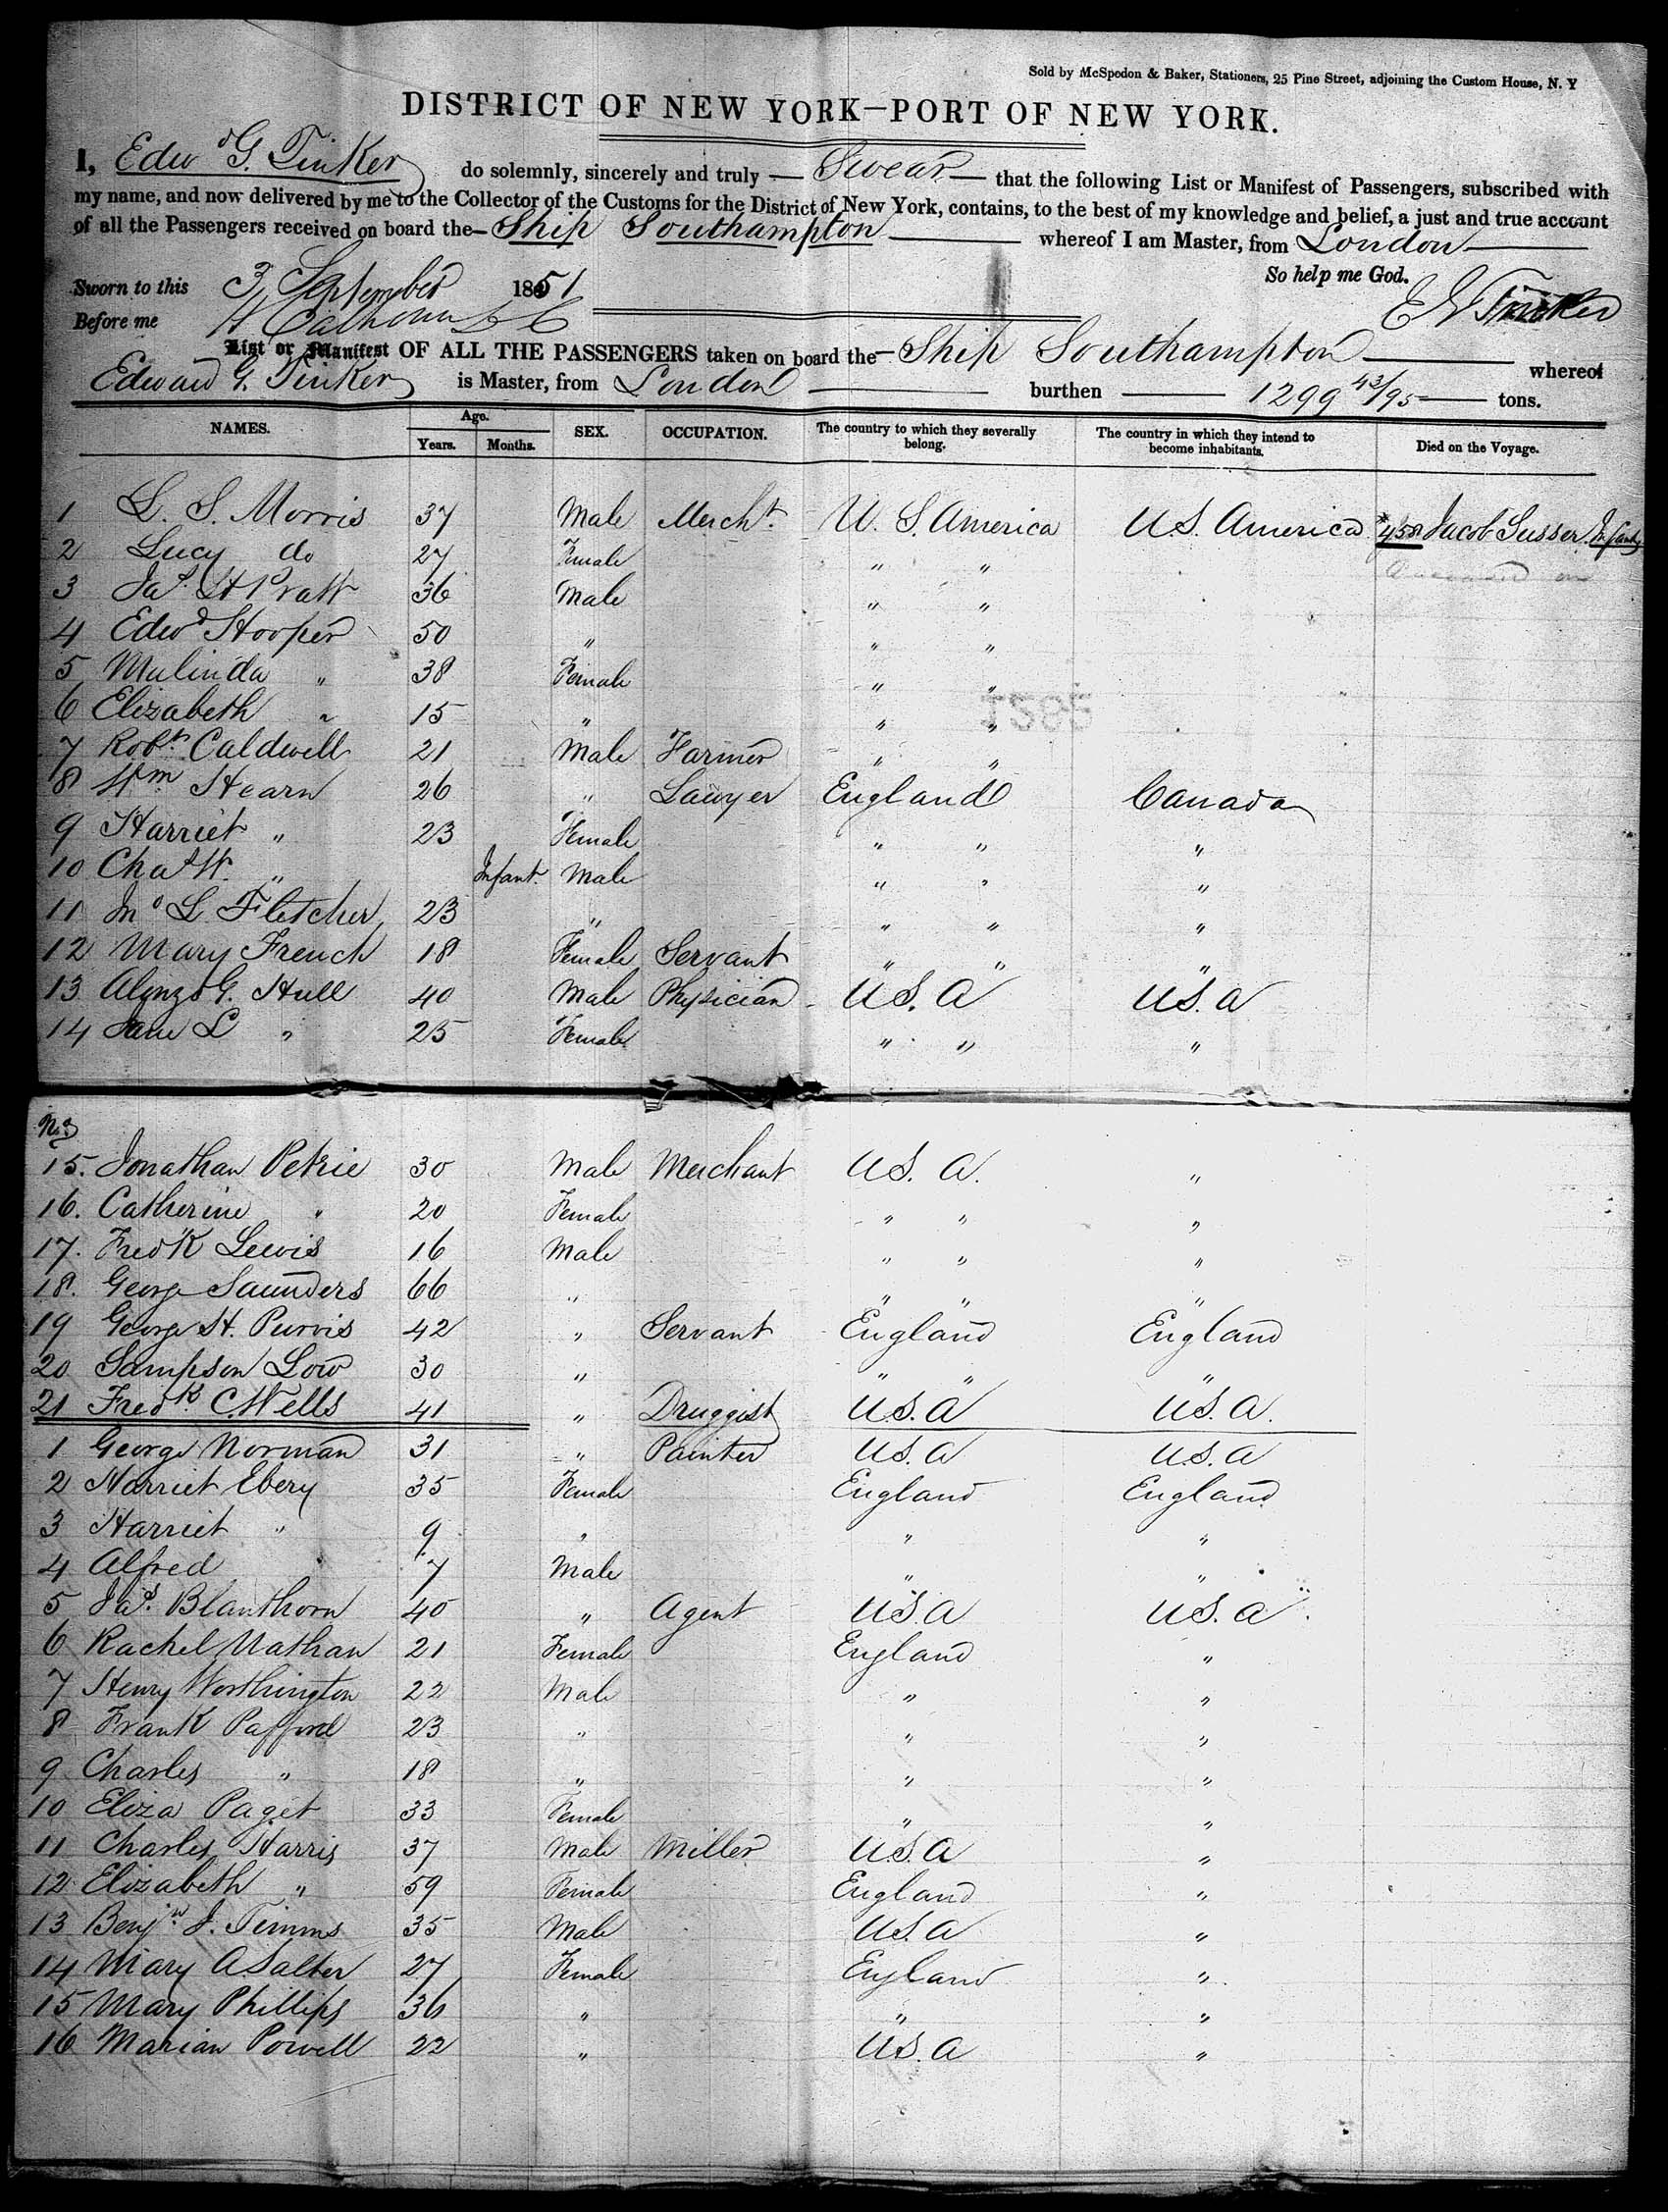 Sold by McSpedon & Baker, Stationers, 25 Pine Street, adjoining the Custom House, N. Y
DISTRICT OF NEW YORK—PORT OF NEW YORK.
I, Edwd G. Tinker do solemnly, sincerely and truly — Swear — that the following List or Manifest of Passengers, subscribed with
my name, and now delivered by me to the Collector of the Customs for the District of New York, contains, to the best of my knowledge and belief, a just and true account
of all the Passengers received on board the — Ship Southampton — whereof I am Master, from London —
So help me God.
Sworn to this 3 September 1851
E G Tinker
Before me H Calhoun
List or Manifest OF ALL THE PASSENGERS taken on board the — Ship Southampton — whereof
Edward G. Tinker is Master, from London — burthen — 1299 43/95 — tons.
NAMES. Age. Years. Months. SEX. OCCUPATION. The country to which they severally belong. The country in which they intend to become inhabitants. Died on the Voyage.
1 L. S. Morris 37 Male Mercht. U. S. America U.S. America 458 Jacob Susser. Infant
2 Lucy do 27 Female " "
3 Jas. H Pratt 36 Male " "
4 Edwd Hooper 50 " " "
5 Malinda " 38 Female " "
6 Elizabeth " 15 " " "
7 Robt. Caldwell 21 Male Farmer " "
8 Wm Hearn 26 " Lawyer England Canada
9 Harriet " 23 Female " " "
10 Chas W. " Infant Male " " "
11 Jno L Fletcher 23 " " " "
12 Mary French 18 Female Servant " " "
13 Alonzo G. Hull 40 Male Physician U.S. A U.S. A
14 Jane L " 25 Female " " "
Nos
15. Jonathan Petrie 30 Male Merchant U.S. A. "
16. Catherine " 20 Female " " "
17. Fredk Lewis 16 Male " " "
18. George Saunders 66 " " " "
19 George H. Purvis 42 " Servant England England
20 Sampson Low 30 " " " "
21 Fredk. C. Wells 41 " Druggist U.S. A U.S. A.
1 George Norman 31 " Painter U.S. A U.S. A
2 Harriet Ebery 35 Female England England
3 Harriet " 9 " " "
4 Alfred " 7 Male " "
5 Jas. Blanthorn 40 " Agent U.S. A U.S. A
6 Rachel Nathan 21 Female England "
7 Henry Worthington 22 Male " "
8 Frank Pafford 23 " " "
9 Charles " 18 " " "
10 Eliza Paget 33 Female " "
11 Charles Harris 37 Male Miller U.S. A "
12 Elizabeth " 59 Female England "
13 Benjn. J. Timms 35 Male U.S. A "
14 Mary A. Salter 27 Female England "
15 Mary Phillips 36 " " "
16 Marian Powell 22 " U.S. A "